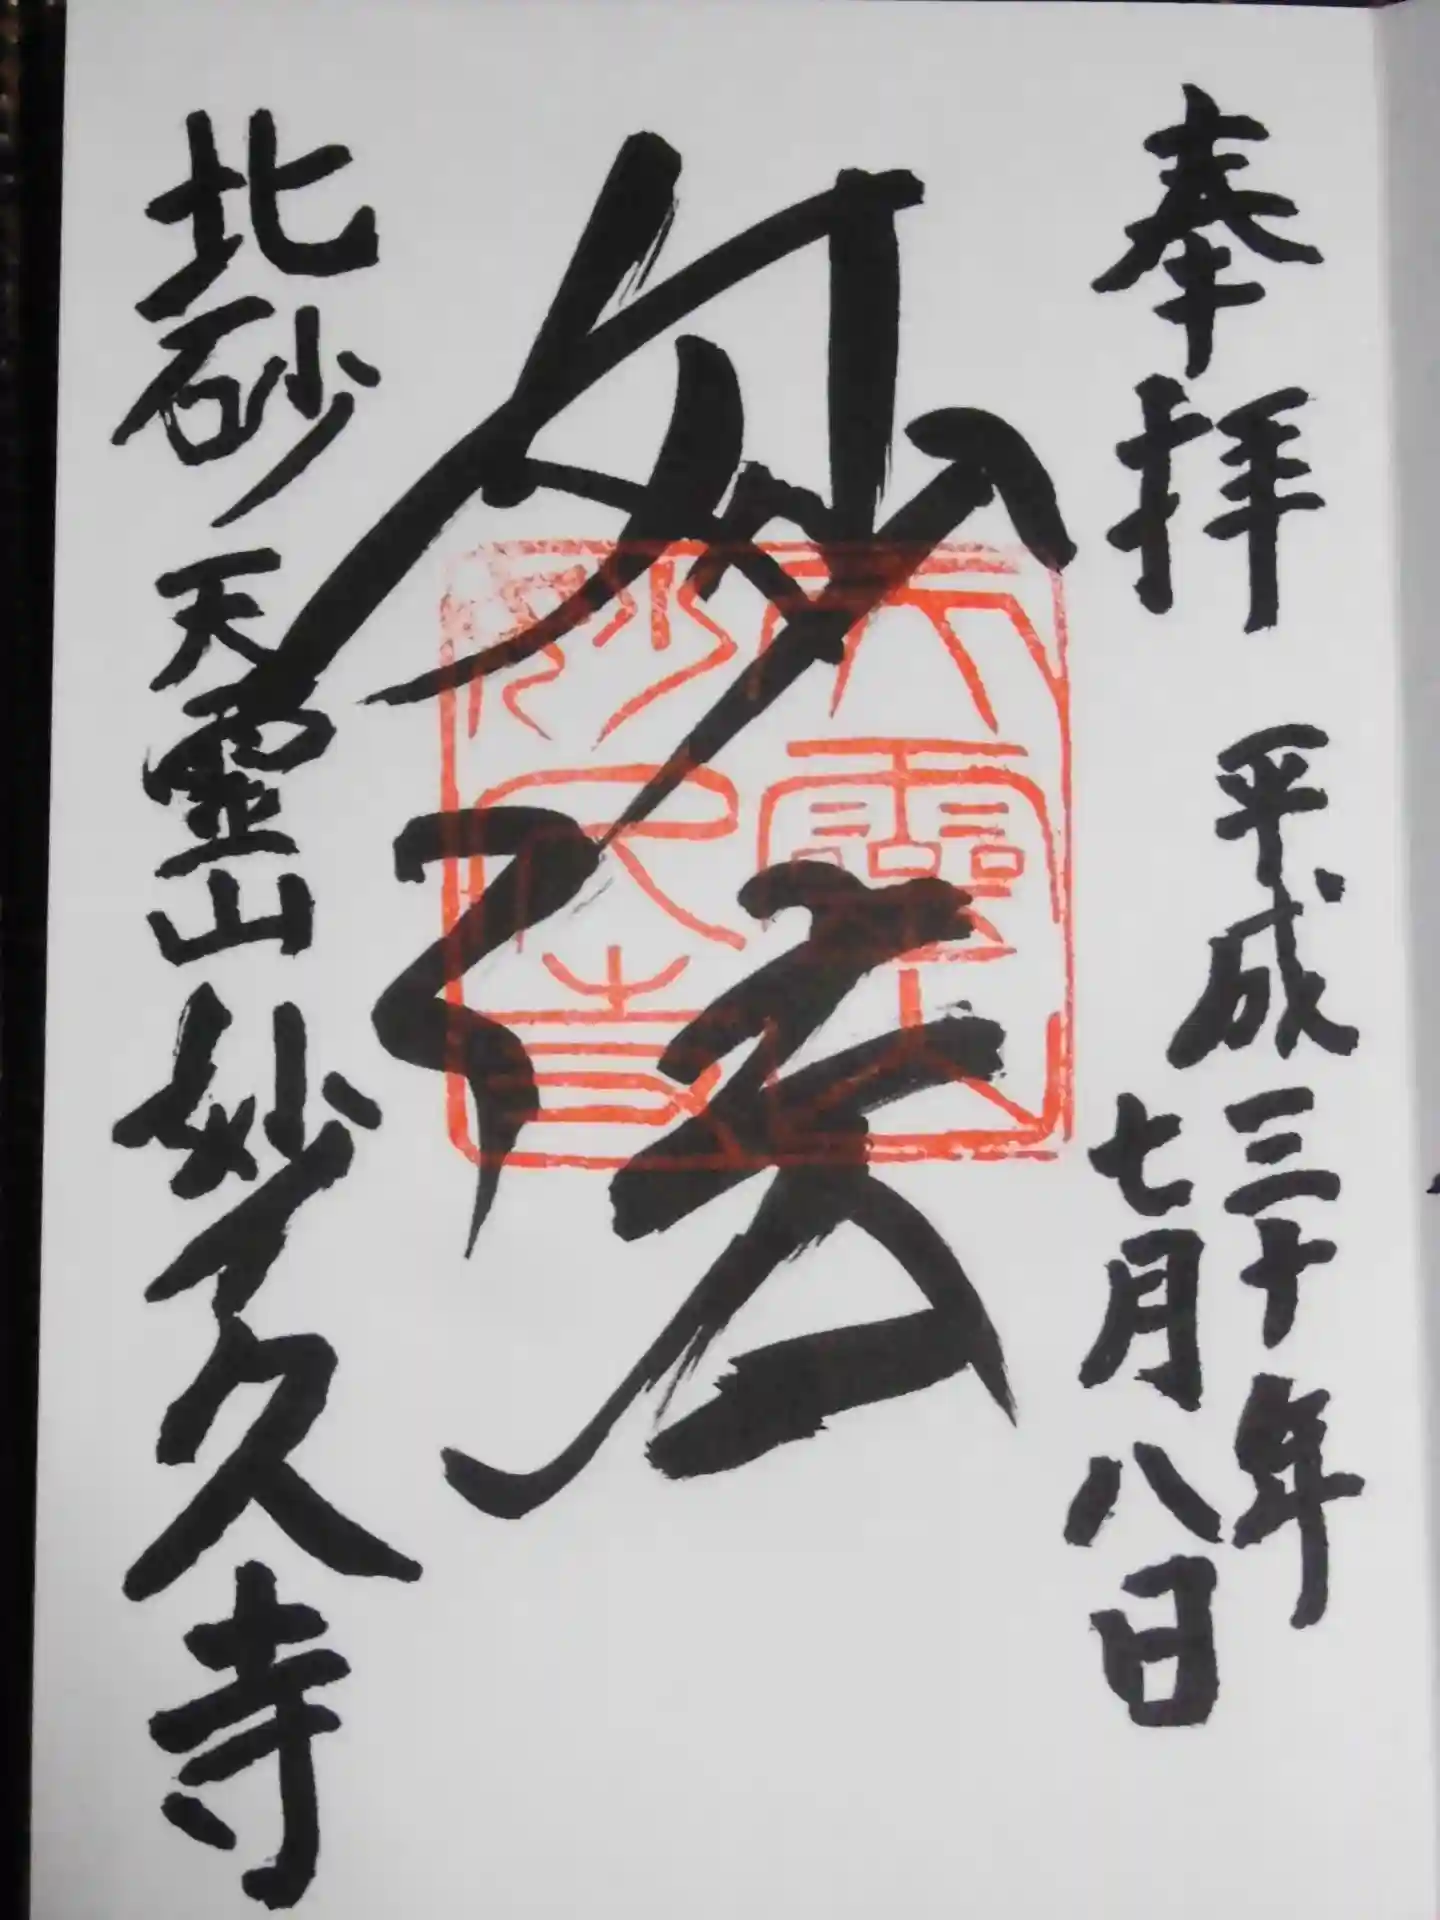 奉拝
平成三十年
七月八日
妙法
天靈山
妙久寺
北砂 天霊山 妙久寺